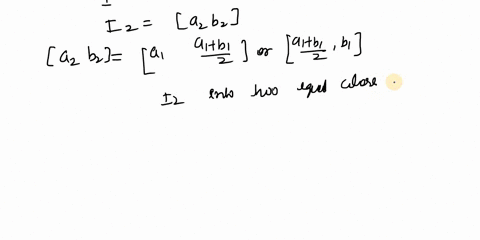 I₂ = [a₂ b₂]
[a₂ b₂] = [a₁ (a₁+b₁)/2] or [(a₁+b₁)/2, b₁]
I₂ into two equal close